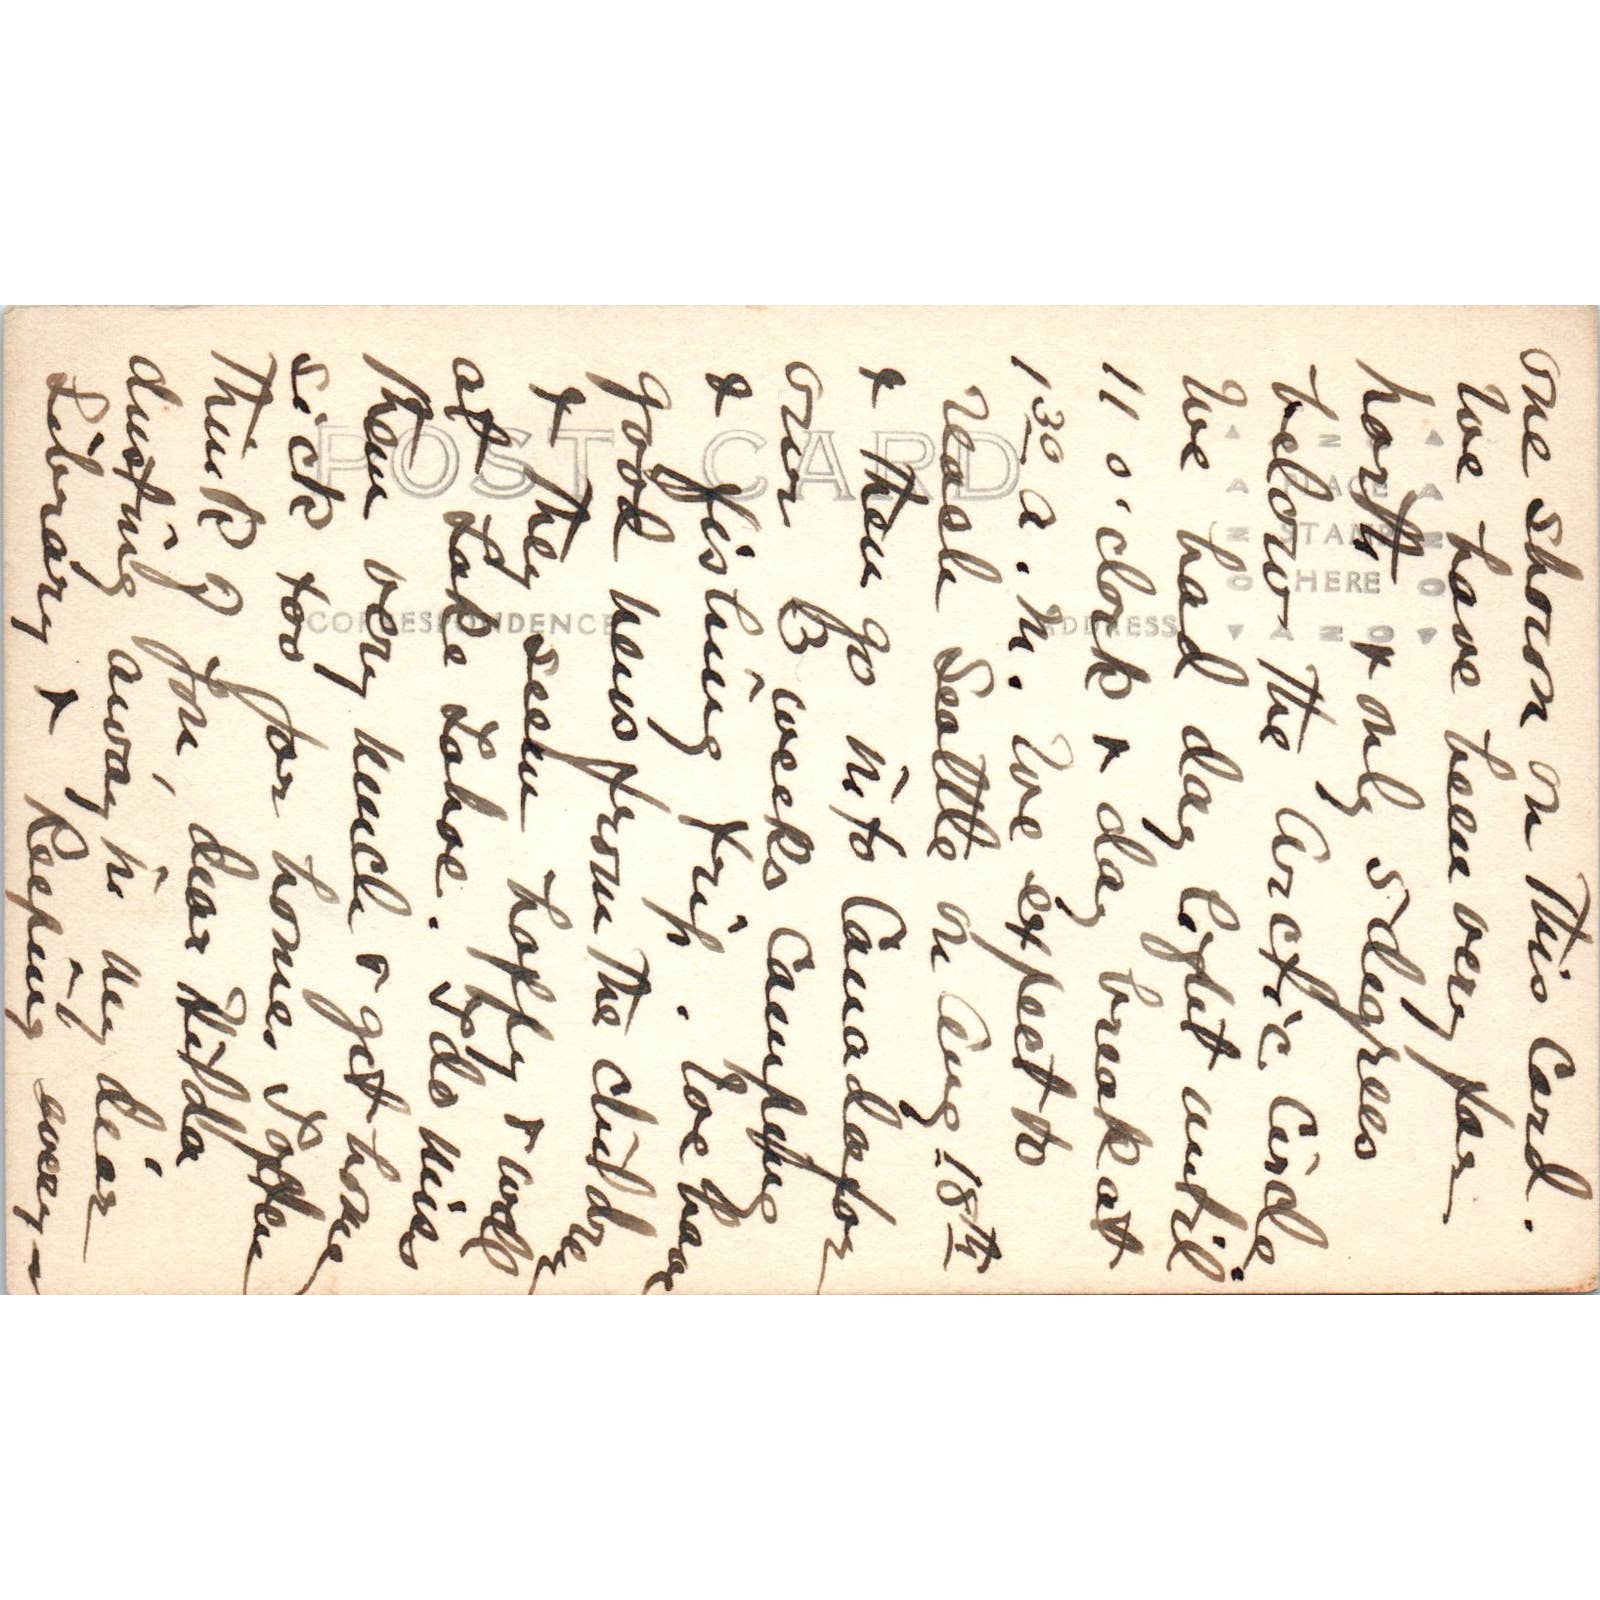 one shown on this Card.
We have been very far
north & only 5 degrees
below the Arctic Circle.
We had day light until
11 o'clock & day break at
1 30 a.m. We expect to
reach Seattle on Aug 18th
& then go into Canada for
our 3 weeks Camping
& fishing trip. We have
good news from the children
& they seem happy & well
at Lake Tahoe. I do miss
them very much & get home
sick too for home. I often
think of you, dear Hilda
dusting away in my dear
Library & keeping every-
POST CARD
CORRESPONDENCE
ADDRESS
PLACE
STAMP
HERE